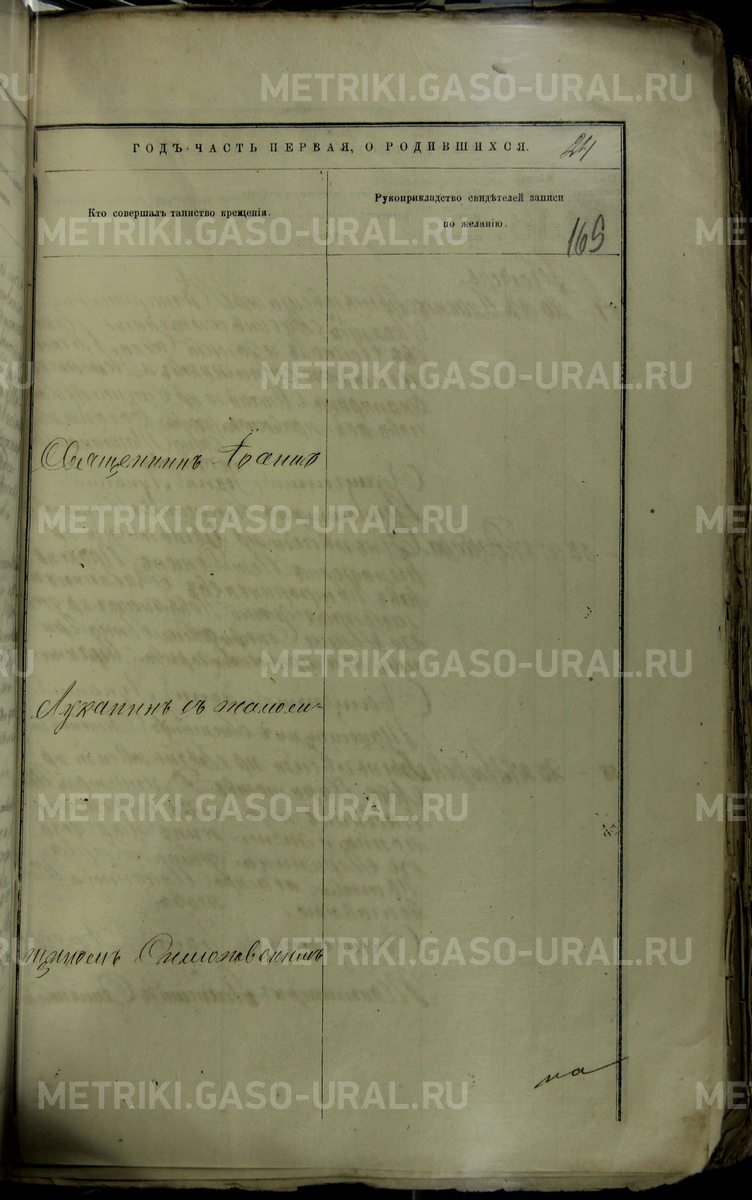 METRIKI.GASO-URAL.RU
ГОДЪ. ЧАСТЬ ПЕРВАЯ, О РОДИВШИХСЯ. 24
Кто совершалъ таинство крещенія.
Рукоприкладство свидѣтелей записи
по желанію.
165
METRIKI.GASO-URAL.RU
METRIKI.GASO-URAL.RU
METRIKI.GASO-URAL.RU
Священникъ Іоаннъ
METRIKI.GASO-URAL.RU
METRIKI.GASO-URAL.RU
Лукапинъ съ псаломи-
METRIKI.GASO-URAL.RU
METRIKI.GASO-URAL.RU
METRIKI.GASO-URAL.RU